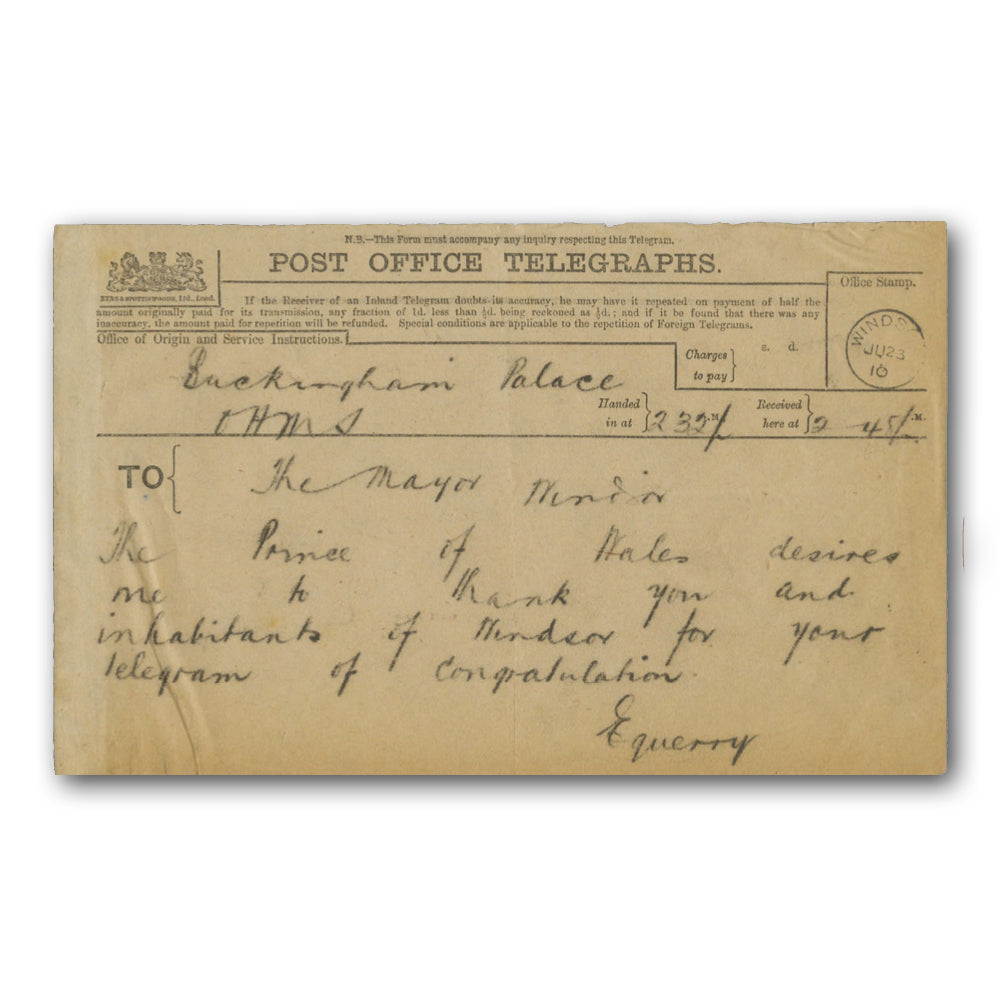 N.B.—This Form must accompany any inquiry respecting this Telegram.
POST OFFICE TELEGRAPHS.
EYRE & SPOTTISWOODE, Ltd., Lond.
If the Receiver of an Inland Telegram doubts its accuracy, he may have it repeated on payment of half the
amount originally paid for its transmission, any fraction of 1d. less than ½d. being reckoned as ½d.; and if it be found that there was any
inaccuracy, the amount paid for repetition will be refunded. Special conditions are applicable to the repetition of Foreign Telegrams.
Office Stamp.
WINDS
JU 23
10
Office of Origin and Service Instructions.
Charges
to pay
s. d.
Buckingham Palace
OHMS
Handed
in at
2 32 .M
Received
here at
2 45 .M.
TO
The Mayor Windsor
The Prince of Wales desires
me to thank you and
inhabitants of Windsor for your
telegram of congratulation
Equerry